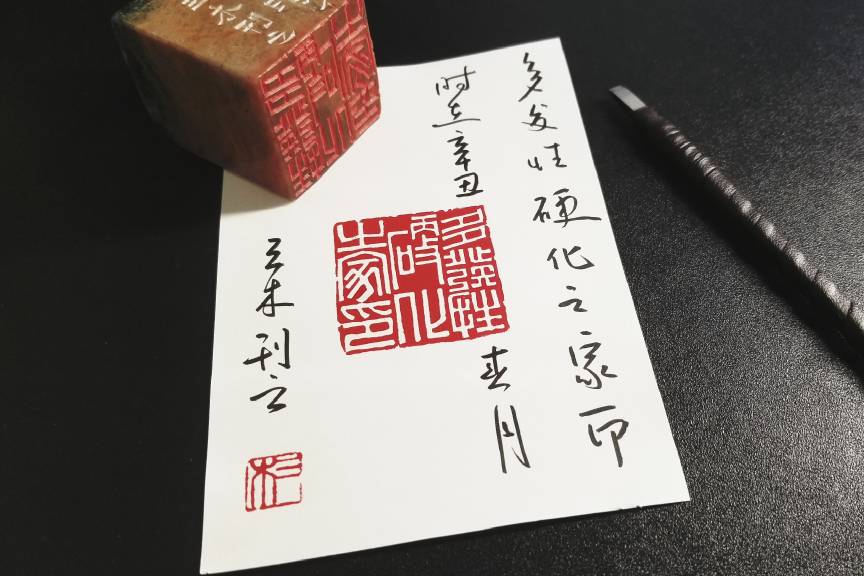 多发性硬化之家印
时在辛丑
春月
多發性
硬化
之家印
三木刊之